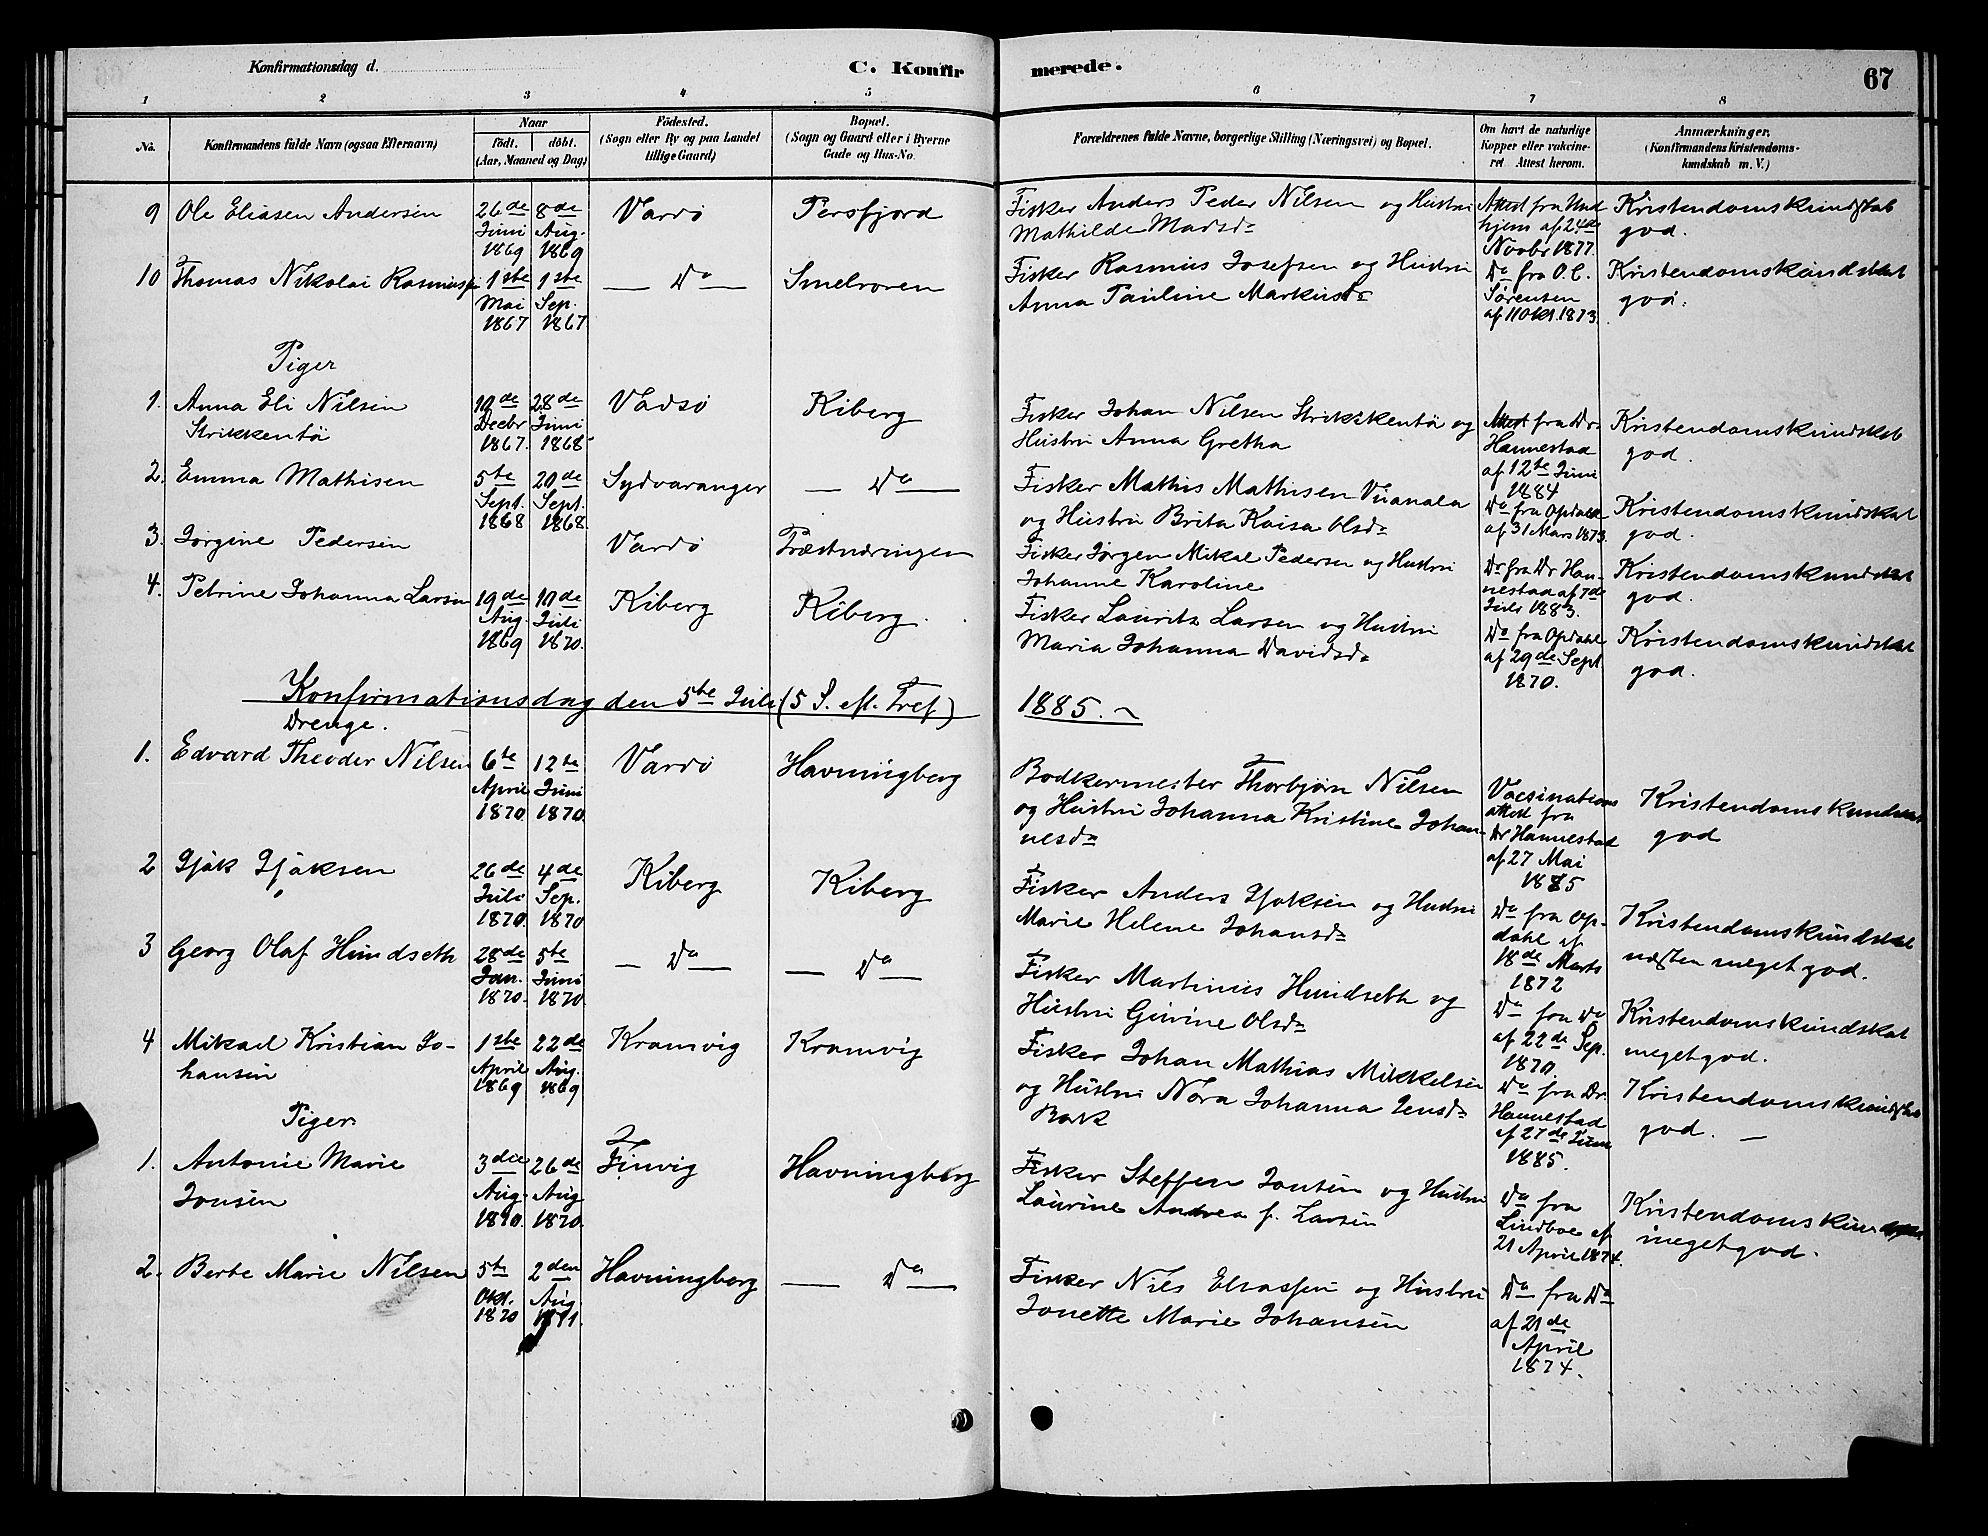 Konfirmationsdag d.
C. Konfirmerede.
67
1 2 3 4 5 6 7 8
No.
Konfirmandens fulde Navn (ogsaa Efternavn)
Naar
födt. döbt.
(Aar, Maaned og Dag)
Födested.
(Sogn eller By og paa Landet
tillige Gaard)
Bopæl.
(Sogn og Gaard eller i Byerne
Gade og Hus-No.
Forældrenes fulde Navne, borgerlige Stilling (Næringsvei) og Bopæl.
Om havt de naturlige
Kopper eller vakcine-
ret Attest herom.
Anmærkninger,
(Konfirmandens Kristendoms-
kundskab m. V.)
9 Ole Eliasen Andersen
26de Juni 1869
8de Aug. 1869
Vardö
Persfjord
Fisker Anders Peder Nilsen og Hustru
Mathilde Madsdr
Attest fra
hjem af 24de
Novbr 1877
Kristendomskundskab
god.
10 Thomas Nikolai Rasmussen
1ste Mai 1867
1ste Sep. 1867
— Do
Smelroren
Fisker Rasmus Josefsen og Hustru
Anna Pauline Markusdr
Do fra O.C.
Sørensen
af 11 Okt. 1873.
Kristendomskundskab
god.
Piger
1. Anna Eli Nilsen
Strikkentö
10de Decbr 1867.
28de Juni 1868
Vadsö
Kiberg
Fisker Johan Nilsen Strikkentö og
Hustru Anna Gretha
Attest fra Dr.
Hannestad
af 12te Juni
1884
Kristendomskundskab
god.
2. Emma Mathisen
5te Sept. 1868
20de Sept. 1868.
Sydvaranger
— Do —
Fisker Mathis Mathisen
og Hustru Brita Kaisa Olsdr
Do fra Opdahl
af 31 Mars 1873.
Kristendomskundskab
god.
3. Jörgine Pedersen
Vardö
Præstnæringen
Fisker Jørgen Mikal Pedersen og Hustru
Johanne Karoline
Do fra Dr Han-
nestad af 7de
Juli 1883.
Kristendomskundskab
god.
4. Petrine Johanna Larsen
19de Aug. 1869
10de Juli 1870.
Kiberg
Kiberg.
Fisker Laurits Larsen og Hustru
Maria Johanna Davidsdr
Do fra Opdahl
af 29de Sept.
1870.
Kristendomskundskab
god.
Konfirmationsdag den 5te Juli (5 S. eft. Tref) 1885.
Drenge.
1. Edvard Theodor Nilsen
6te April 1870
12te Juni 1870.
Vardö
Havningberg
Bodkermester Thorbjørn Nilsen
og Hustru Johanna Kristine Johan-
nesdr
Vacsinations
attest fra
Dr Hannestad
af 27 Mai
1885
Kristendomskundskab
god
2 Isjak Isjaksen
26de Juli 1870.
4de Sep. 1870
Kiberg
Kiberg
Fisker Anders Isjaksen og Hustru
Marie Helene Johansdr
Do fra Op-
dahl af
18de Marts
1872
Kristendomskundskab
næsten meget god.
3 Georg Olaf Hundseth
28de Jan. 1870.
5te Juni 1870
— Do —
— Do —
Fisker Martinus Hundseth og
Hustru Gurine Olsdr
Do fra Do
af 22de Sep.
1870.
Kristendomskundskab
meget god.
4 Mikael Kristian Jo-
hansen
1ste April 1869
22de Aug. 1869
Kramvig
Kramvig
Fisker Johan Mathias Mikkelsen
og Hustru Nora Johanna Jensdr
Bark
Do fra Dr.
Hannestad
af 27de Juni
1885.
Kristendomskundskab
god. —
Piger
1. Antonie Marie
Jonsen
3die Aug. 1870.
26de Aug 1870.
Finvig
Havningberg
Fisker Steffen Jonsen og Hustru
Laurine Andrea f. Larsen
Do fra
Lindboe af
21 April 1874.
Kristendomskundskab
meget god.
2. Berte Marie Nilsen
5te Okt. 1870
2den Aug 1871.
Havningberg
— Do —
Fisker Nils og Hustru
Jonette Marie Johansen
Do fra Do
af 21de
April
1874.